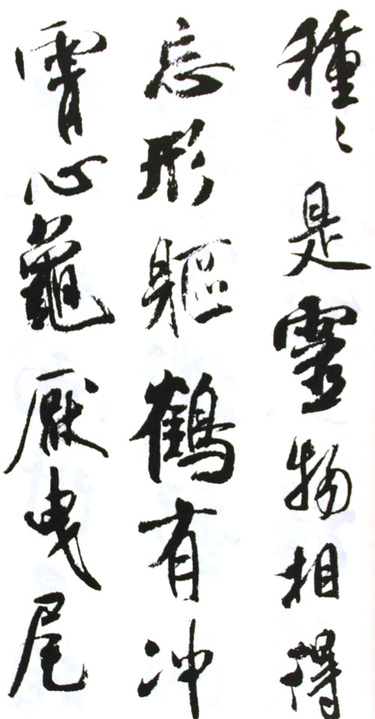 種〻是靈物相得
忘形軀鶴有冲
霄心龜厭曳尾